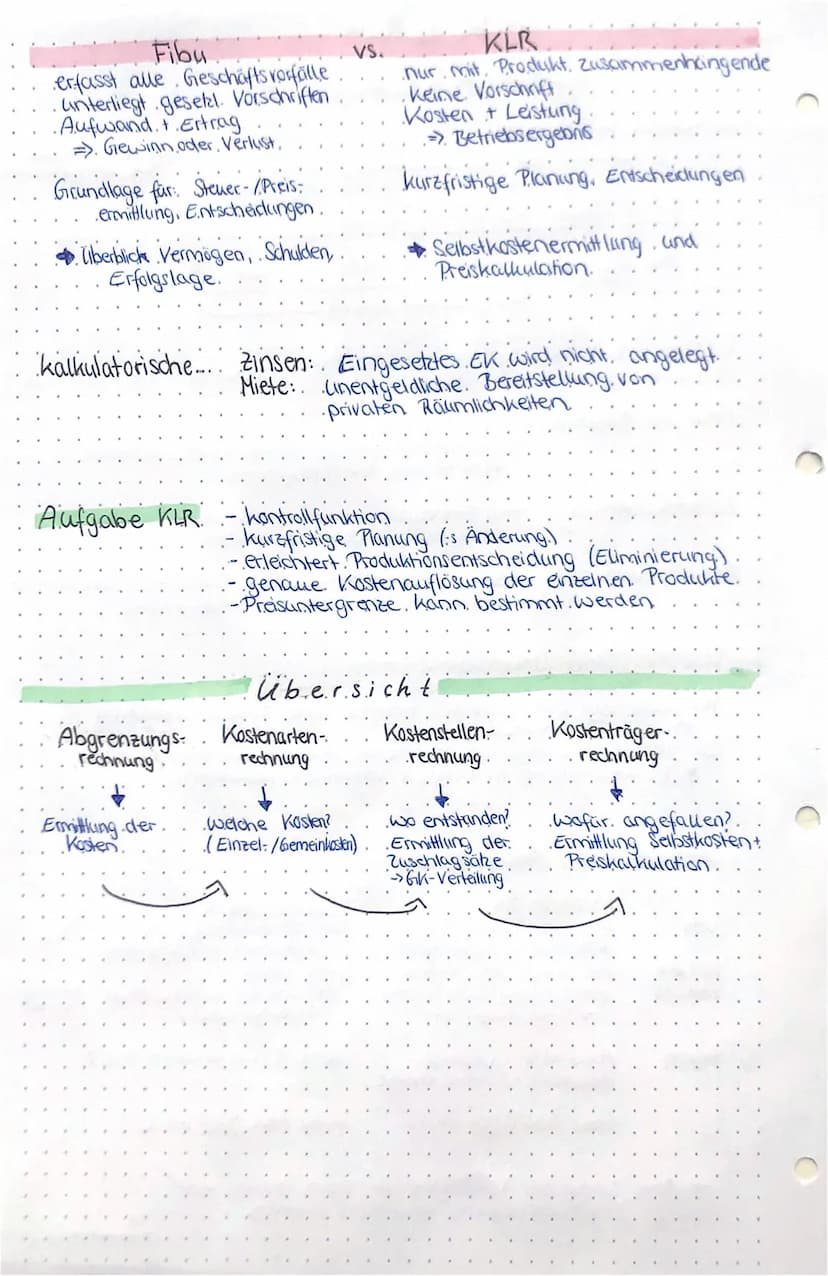 Fibu vs. KLR
erfasst alle Geschäftsvorfälle
unterliegt gesetzl. Vorschriften
Aufwand + Ertrag
=> Gewinn oder Verlust
Grundlage für: Steuer-/Preis-
ermittlung, Entscheidungen
→ Überblick Vermögen, Schulden,
Erfolgslage
nur mit Produkt zusammenhängende
keine Vorschrift
Kosten + Leistung
=> Betriebsergebnis
kurzfristige Planung, Entscheidungen
→ Selbstkostenermittlung und
Preiskalkulation
kalkulatorische... Zinsen: Eingesetztes EK wird nicht angelegt
Miete: unentgeldliche Bereitstellung von
privaten Räumlichkeiten
Aufgabe KLR
- Kontrollfunktion
- kurzfristige Planung (:s Änderung)
- erleichtert Produktionsentscheidung (Eliminierung)
- genaue Kostenauflösung der einzelnen Produkte
- Preisuntergrenze kann bestimmt werden
Übersicht
Abgrenzungs-
rechnung
↓
Ermittlung der
Kosten
Kostenarten-
rechnung
↓
welche Kosten?
(Einzel-/Gemeinkosten)
Kostenstellen-
rechnung
↓
wo entstanden?
Ermittlung der
Zuschlagsätze
→ GK-Verteilung
Kostenträger-
rechnung
↓
wofür angefallen?
Ermittlung Selbstkosten +
Preiskalkulation